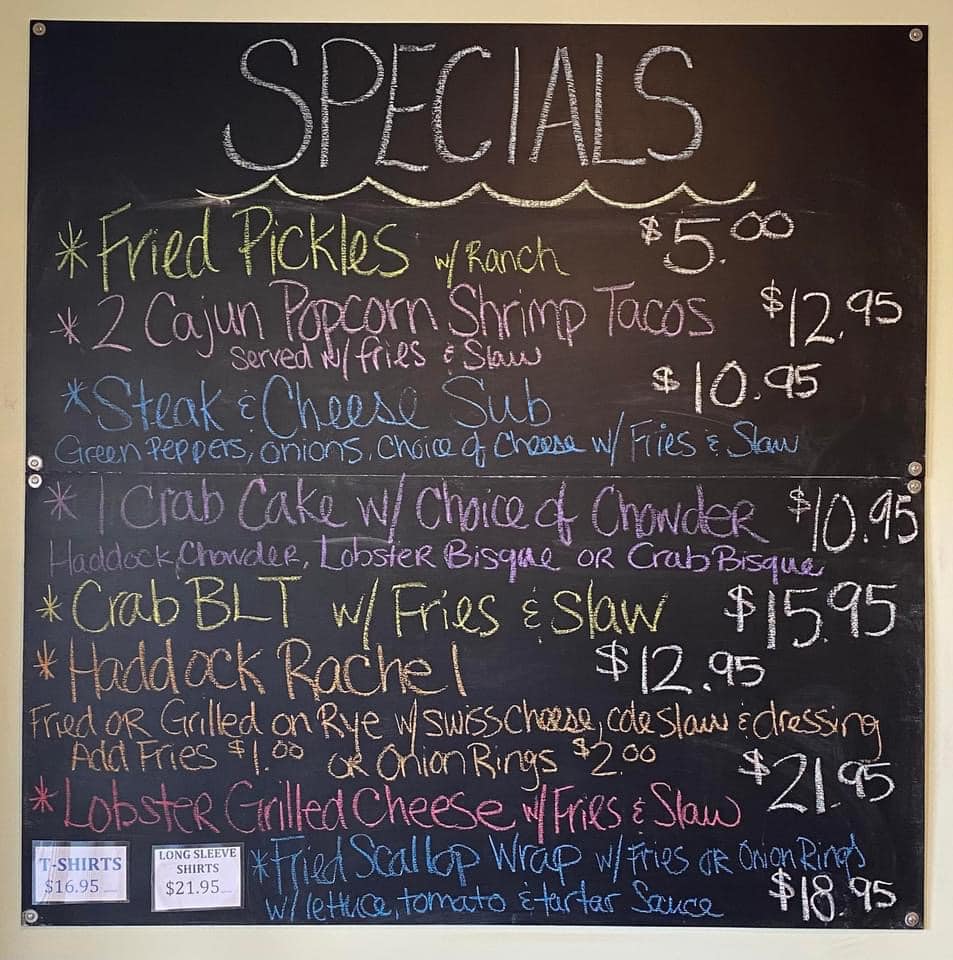 SPECIALS
* Fried Pickles w/ Ranch $5.00
* 2 Cajun Popcorn Shrimp Tacos $12.95
Served w/ fries & Slaw
* Steak & Cheese Sub $10.95
Green Peppers, onions, choice of cheese w/ Fries & Slaw
* 1 Crab Cake w/ Choice of Chowder $10.95
Haddock Chowder, Lobster Bisque OR Crab Bisque
* Crab BLT w/ Fries & Slaw $15.95
* Haddock Rachel $12.95
Fried OR Grilled on Rye w/ swiss cheese, cole slaw & dressing
Add Fries $1.00 OR Onion Rings $2.00
* Lobster Grilled Cheese w/ Fries & Slaw $21.95
* Fried Scallop Wrap w/ Fries OR Onion Rings
w/ lettuce, tomato & tartar Sauce $18.95
T-SHIRTS
$16.95
LONG SLEEVE
SHIRTS
$21.95